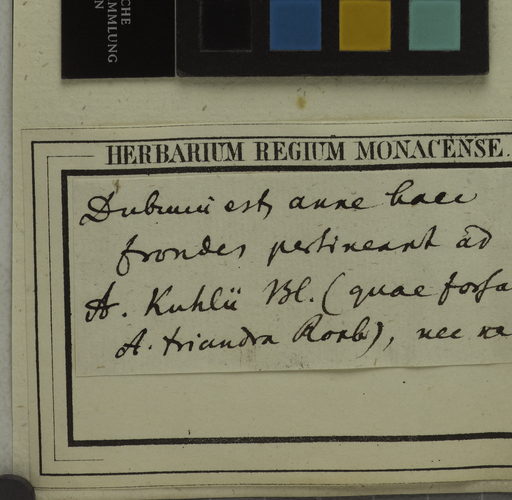 CHE
MMLUNG
N
HERBARIUM REGIUM MONACENSE.
Dubium est, anne haec
frondes pertineant ad
A. Kuhlii Bl. (quae forsa
A. triandra Roxb), nec